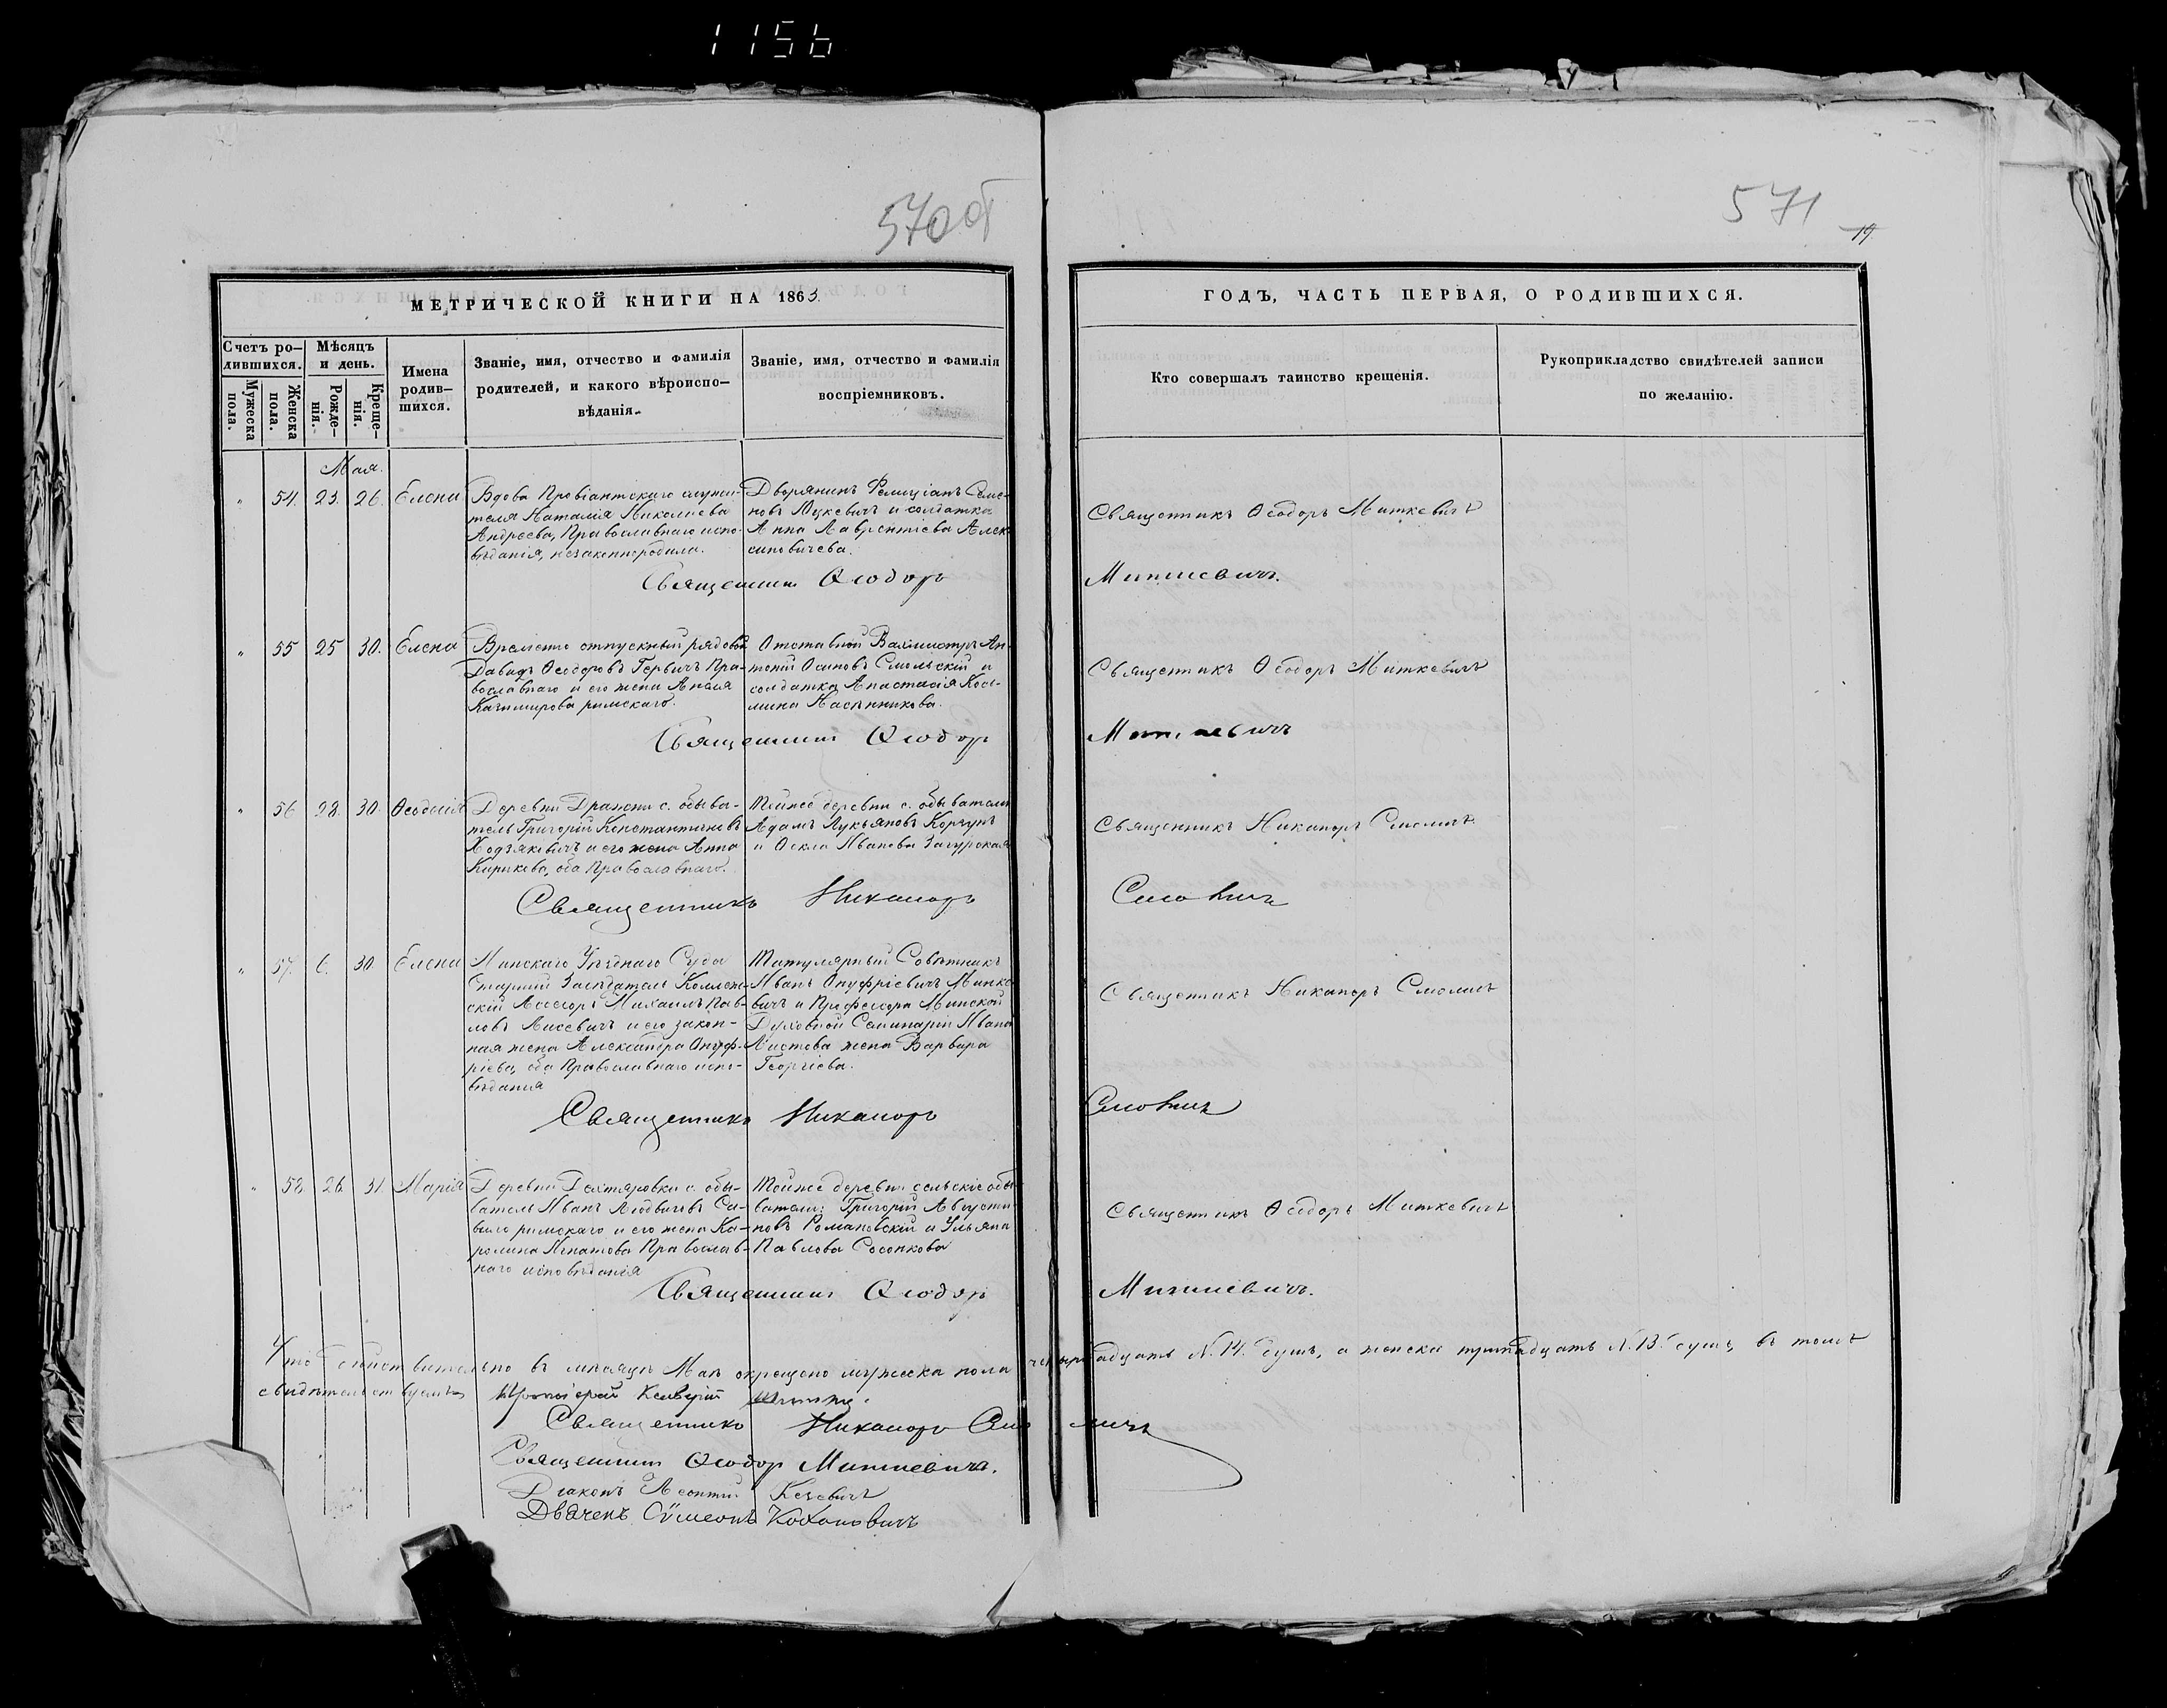 1156
570об
571
19
МЕТРИЧЕСКОЙ КНИГИ НА 1863.
ГОДЪ, ЧАСТЬ ПЕРВАЯ, О РОДИВШИХСЯ.
Счетъ ро-
дившихся.
Мужеска
пола.
Женска
пола.
Мѣсяцъ
и день.
Рожде-
нія.
Креще-
нія.
Имена
родив-
шихся.
Званіе, имя, отчество и фамилія
родителей, и какого вѣроиспо-
вѣданія.
Званіе, имя, отчество и фамилія
воспріемниковъ.
Кто совершалъ таинство крещенія.
Рукоприкладство свидѣтелей записи
по желанію.
Мая.
" 54. 23. 26. Елена
Вдова Провіантскаго служи-
теля Наталія Николаева
Андреева, Православнаго испо-
вѣданія, незаконнородила.
Дворянинъ Фелиціанъ Семе-
новъ Муцкевичъ и солдатка
Анна Лаврентіева Алек-
синовичева.
Священникъ Ѳеодоръ Миткевичъ
Священникъ Ѳеодоръ Миткевичъ.
" 55 25 30. Елена
Временно отпускный рядовой
Давидъ Ѳеодоровъ Гервичъ Пра-
вославнаго и его жена Анеля
Казимирова римскаго.
Отставной Вахмистръ Ан-
тоній Осиповъ Смольскій и
солдатка Анастасія Кось-
мина Пасынникова.
Священникъ Ѳеодоръ Миткевичъ
Священникъ Ѳеодоръ Миткевичъ
" 56 28. 30. Ѳеодосія
Деревни Дражни с. обыва-
тель Григорій Константиновъ
Ходзякевичъ и его жена Анна
Кирикова, оба Православнаго.
Тойже деревни с. обыватели
Адамъ Лукьяновъ Коршунъ
и Ѳекла Иванова Загурская
Священникъ Никаноръ Смоличъ.
Священникъ Никаноръ Смоличъ
" 57. 6. 30. Елена
Минскаго Уѣзднаго Суда
Старшій Засѣдатель Коллеж-
скій Ассесоръ Михаилъ Пав-
ловъ Лисевичъ и его закон-
ная жена Александра Онуф-
ріева, оба Православнаго испо-
вѣданія
Титулярный Совѣтникъ
Иванъ Онуфріевичъ Минке-
вичъ и Профессора Минской
Духовной Семинаріи Ивана
Листова жена Варвара
Георгіева.
Священникъ Никаноръ Смоличъ
Священникъ Никаноръ Смоличъ
" 58. 26. 31. Марія
Деревни Дехтяровки с. обы-
ватель Иванъ Людвиговъ Са-
вило римскаго и его жена Ка-
ролина Игнатова Православ-
наго исповѣданія
Тойже деревни сельскіе обы-
ватели: Григорій Августи-
новъ Романовскій и Ульяна
Павлова Сосонкова
Священникъ Ѳеодоръ Миткевичъ
Священникъ Ѳеодоръ Миткевичъ.
Что дѣйствительно въ мѣсяцѣ Маѣ окрещено мужеска пола четырнадцать N. 14. душъ, а женска тринадцать N. 13. душъ, въ томъ
свидѣтельствуемъ Протоіерей
Священникъ Никаноръ Смоличъ
Священникъ Ѳеодоръ Миткевичъ.
Діаконъ Леонтій
Дьячекъ Сѵмеонъ Кохановичъ